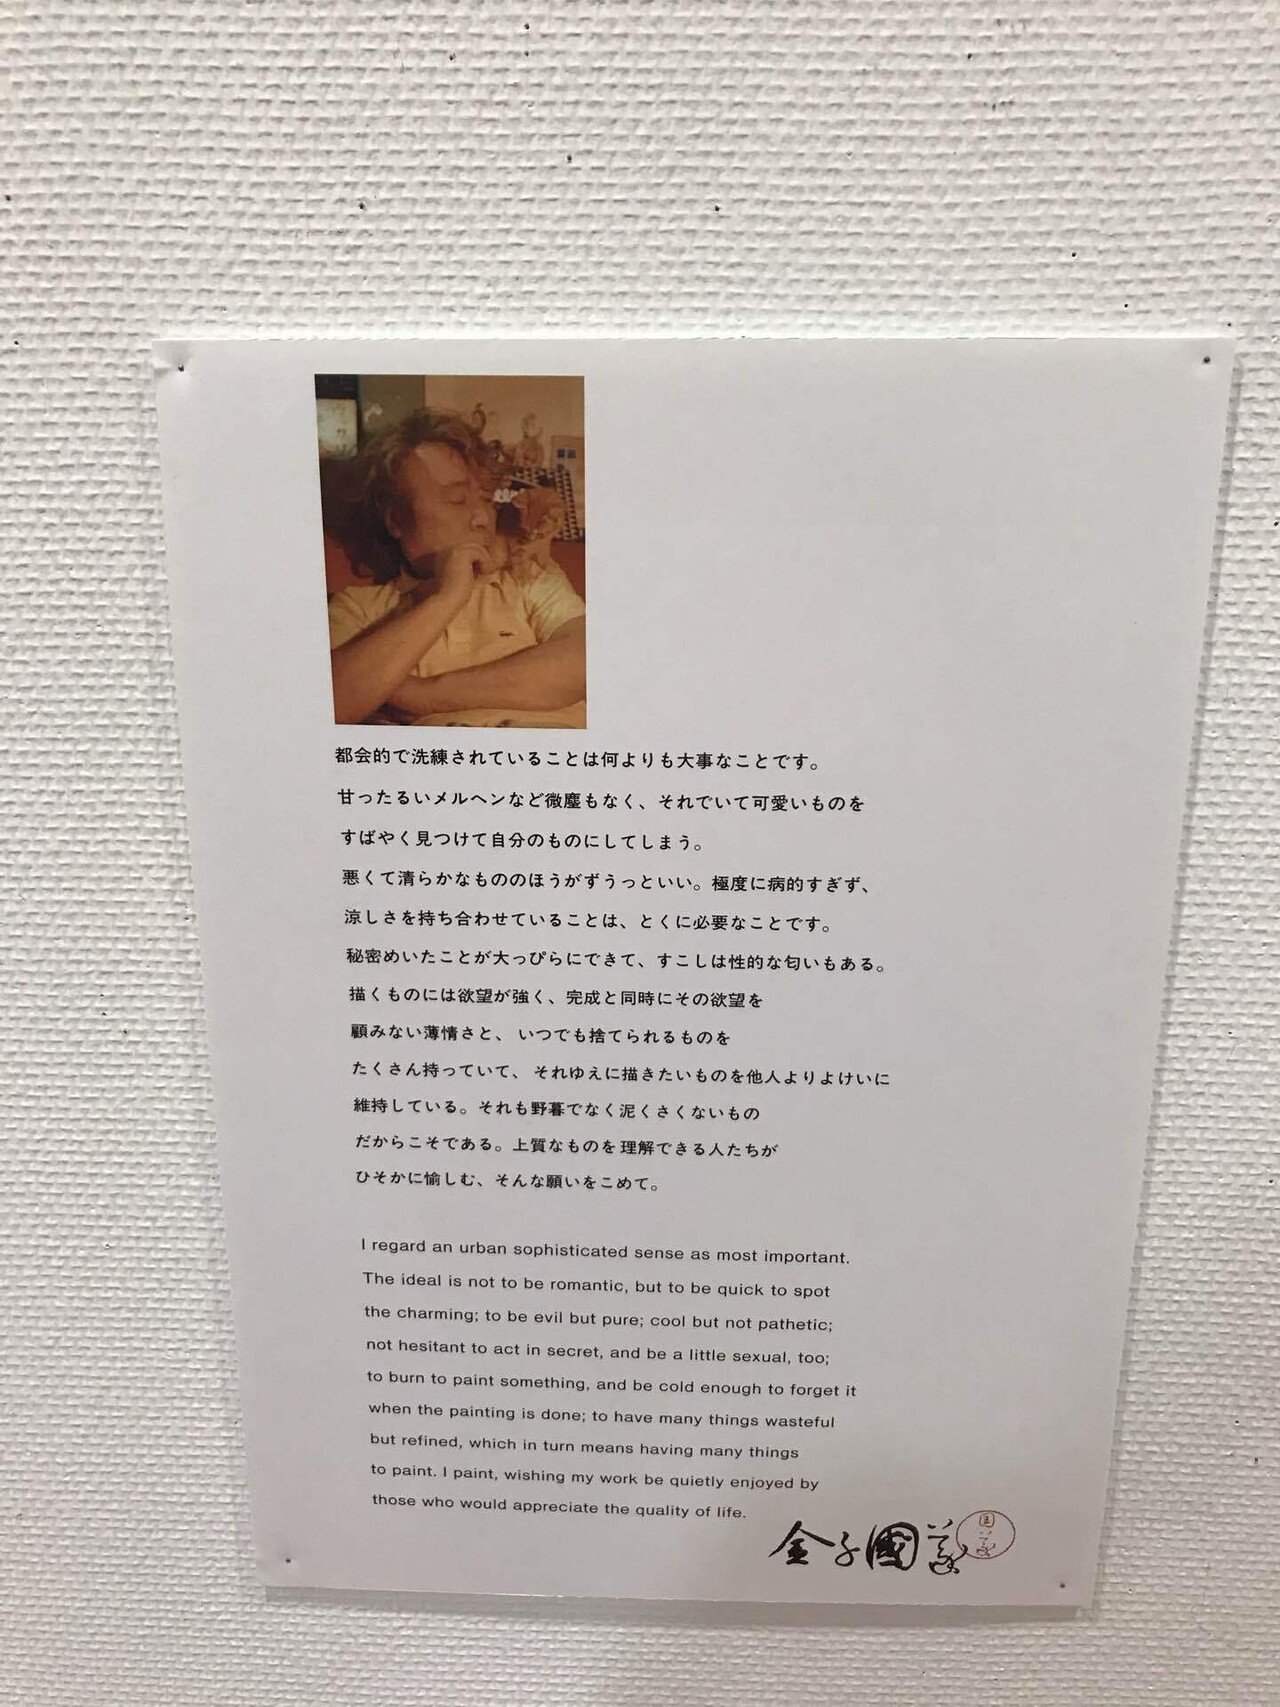 都会的で洗練されていることは何よりも大事なことです。
甘ったるいメルヘンなど微塵もなく、それでいて可愛いものを
すばやく見つけて自分のものにしてしまう。
悪くて清らかなもののほうがずうっといい。極度に病的すぎず、
涼しさを持ち合わせていることは、とくに必要なことです。
秘密めいたことが大っぴらにできて、すこしは性的な匂いもある。
描くものには欲望が強く、完成と同時にその欲望を
顧みない薄情さと、いつでも捨てられるものを
たくさん持っていて、それゆえに描きたいものを他人よりよけいに
維持している。それも野暮でなく泥くさくないもの
だからこそである。上質なものを理解できる人たちが
ひそかに愉しむ、そんな願いをこめて。
I regard an urban sophisticated sense as most important.
The ideal is not to be romantic, but to be quick to spot
the charming; to be evil but pure; cool but not pathetic;
not hesitant to act in secret, and be a little sexual, too;
to burn to paint something, and be cold enough to forget it
when the painting is done; to have many things wasteful
but refined, which in turn means having many things
to paint. I paint, wishing my work be quietly enjoyed by
those who would appreciate the quality of life.
金子國義